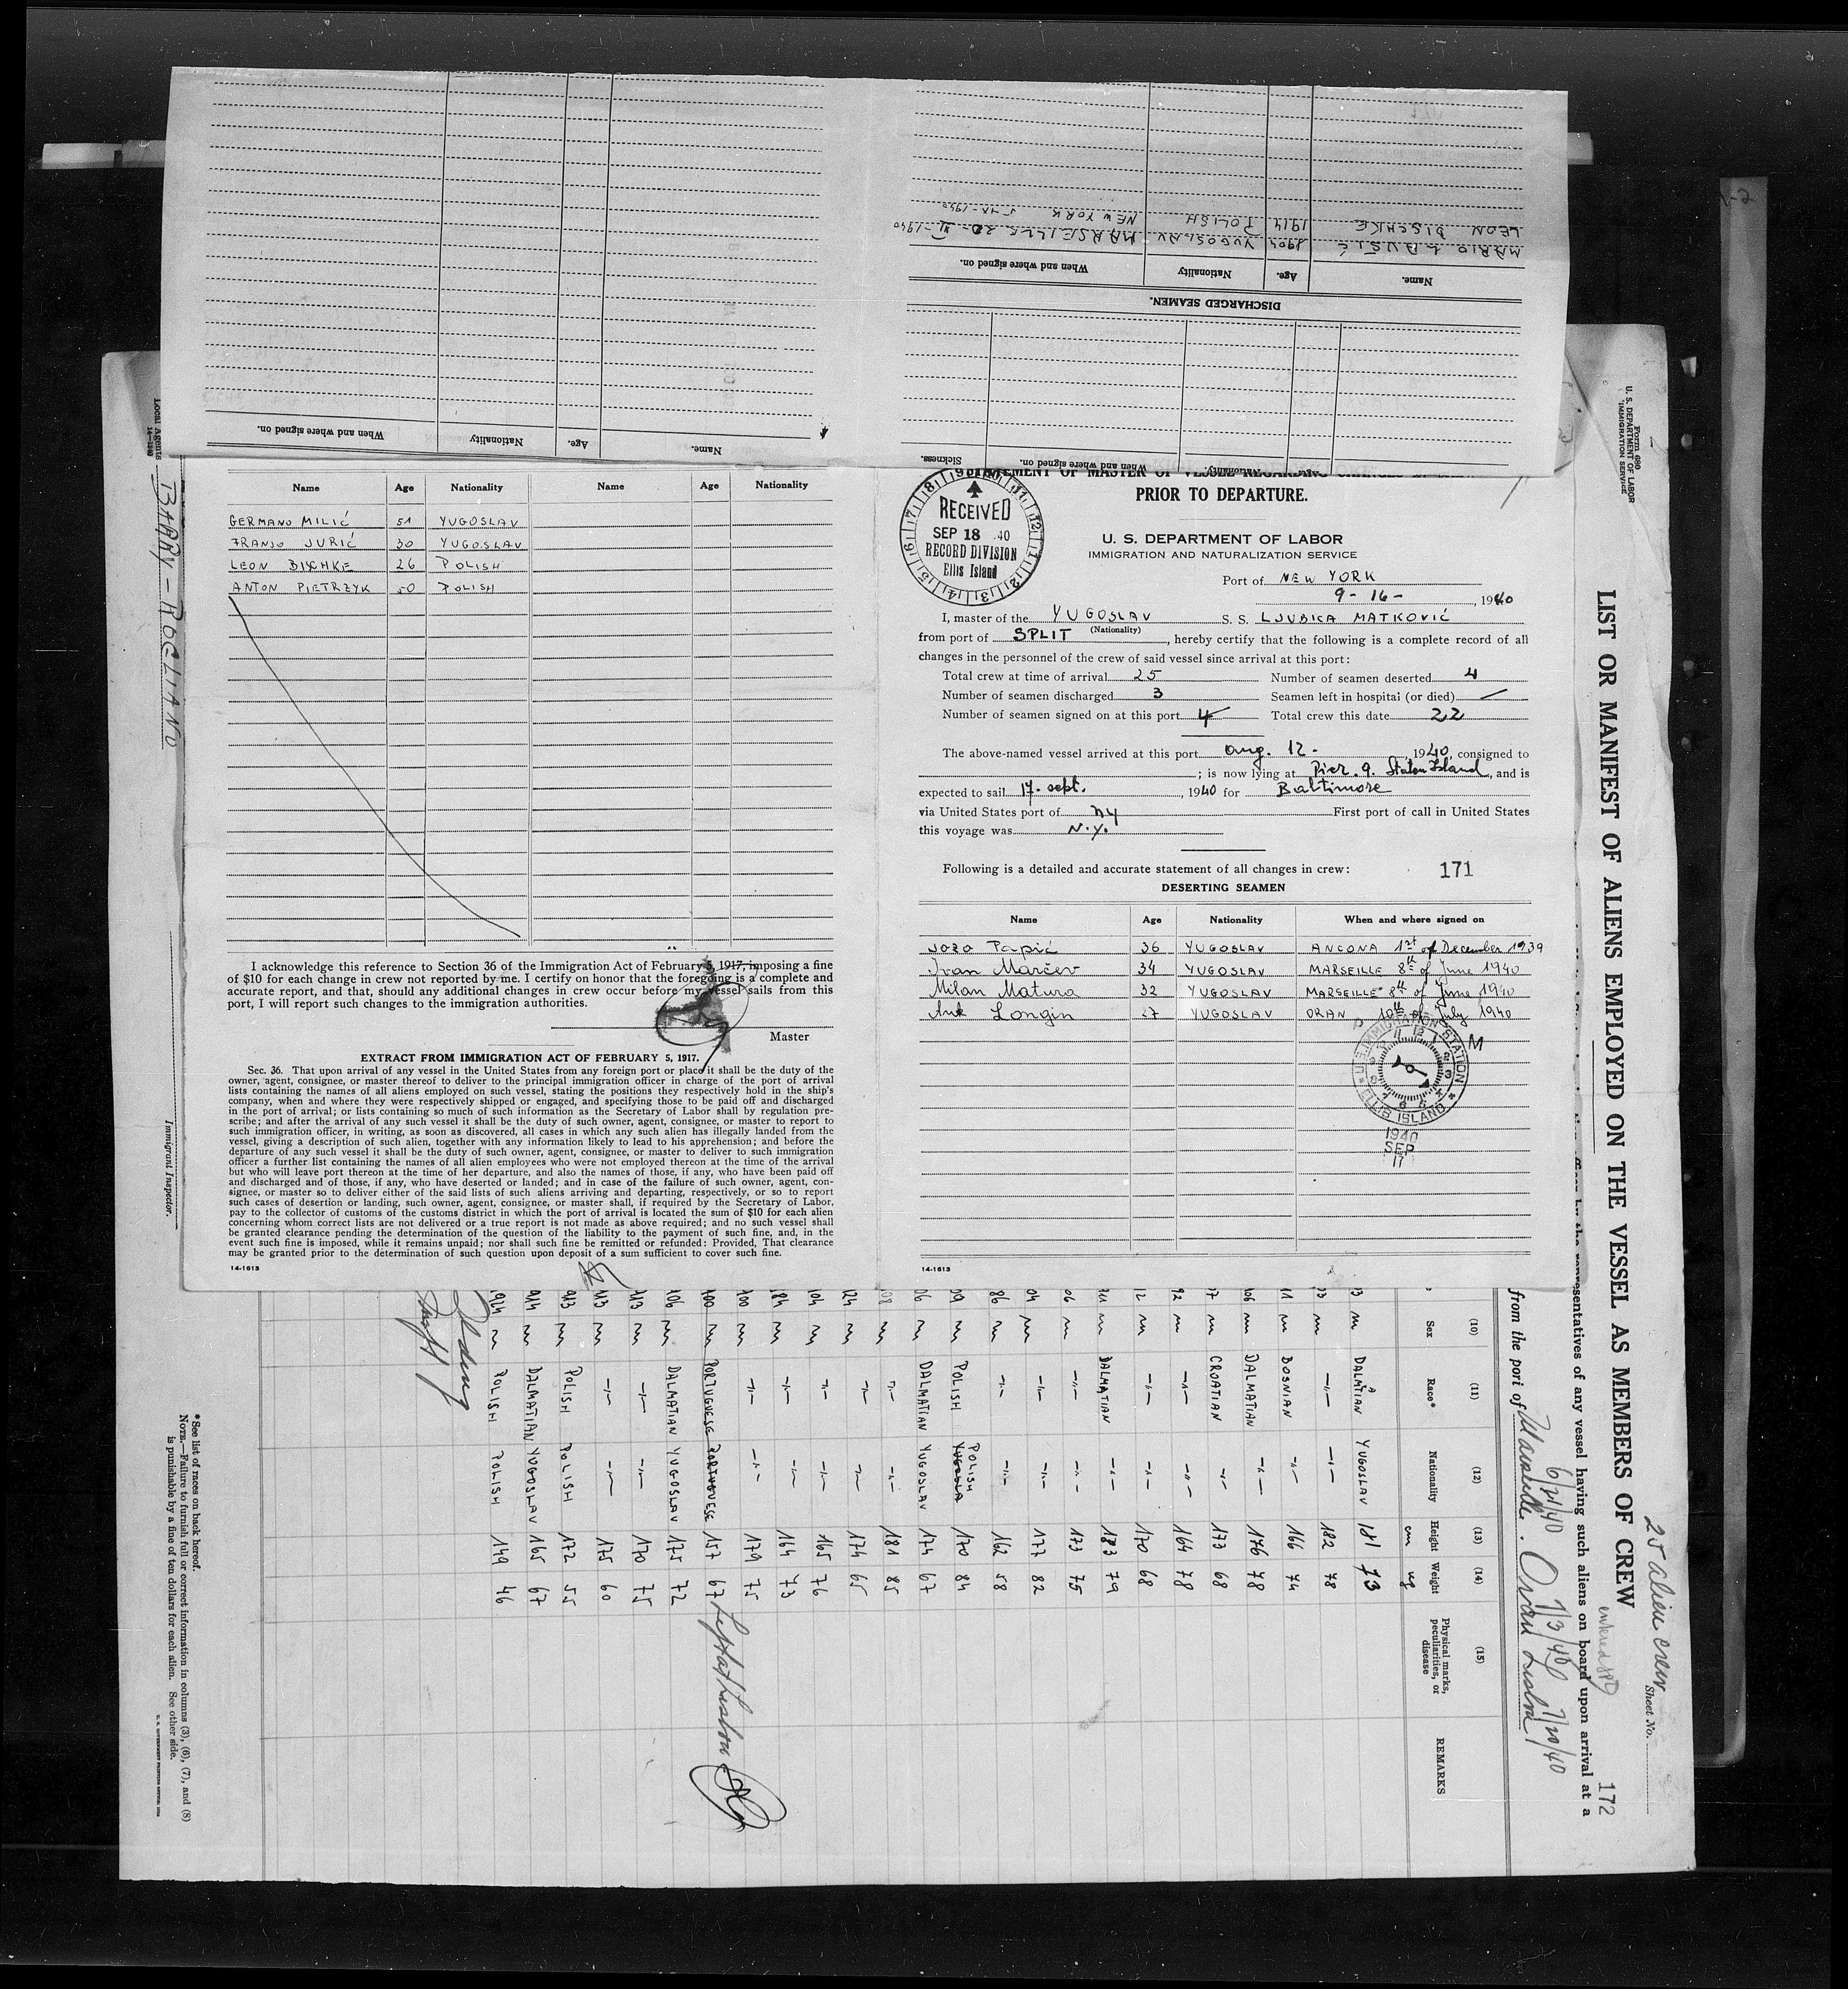 Name Age Nationality Name Age Nationality
GERMANO MILIĆ 51 YUGOSLAV
FRANJO JURIĆ 30 YUGOSLAV
LEON BISCHKE 26 POLISH
ANTON PIETRZYK 50 POLISH
I acknowledge this reference to Section 36 of the Immigration Act of February 5, 1917, imposing a fine
of $10 for each change in crew not reported by me. I certify on honor that the foregoing is a complete and
accurate report, and that, should any additional changes in crew occur before my vessel sails from this
port, I will report such changes to the immigration authorities.
Master
EXTRACT FROM IMMIGRATION ACT OF FEBRUARY 5, 1917.
Sec. 36. That upon arrival of any vessel in the United States from any foreign port or place it shall be the duty of the
owner, agent, consignee, or master thereof to deliver to the principal immigration officer in charge of the port of arrival
lists containing the names of all aliens employed on such vessel, stating the positions they respectively hold in the ship's
company, when and where they were respectively shipped or engaged, and specifying those to be paid off and discharged
in the port of arrival; or lists containing so much of such information as the Secretary of Labor shall by regulation pre-
scribe; and after the arrival of any such vessel it shall be the duty of such owner, agent, consignee, or master to report to
such immigration officer, in writing, as soon as discovered, all cases in which any such alien has illegally landed from the
vessel, giving a description of such alien, together with any information likely to lead to his apprehension; and before the
departure of any such vessel it shall be the duty of such owner, agent, consignee, or master to deliver to such immigration
officer a further list containing the names of all alien employees who were not employed thereon at the time of the arrival
but who will leave port thereon at the time of her departure, and also the names of those, if any, who have been paid off
and discharged and of those, if any, who have deserted or landed; and in case of the failure of such owner, agent, con-
signee, or master so to deliver either of the said lists of such aliens arriving and departing, respectively, or so to report
such cases of desertion or landing, such owner, agent, consignee, or master shall, if required by the Secretary of Labor,
pay to the collector of customs of the customs district in which the port of arrival is located the sum of $10 for each alien
concerning whom correct lists are not delivered or a true report is not made as above required; and no such vessel shall
be granted clearance pending the determination of the question of the liability to the payment of such fine, and, in the
event such fine is imposed, while it remains unpaid; nor shall such fine be remitted or refunded: Provided, That clearance
may be granted prior to the determination of such question upon deposit of a sum sufficient to cover such fine.
14-1613
PRIOR TO DEPARTURE.
RECEIVED
SEP 18 40
RECORD DIVISION
Ellis Island
U. S. DEPARTMENT OF LABOR
IMMIGRATION AND NATURALIZATION SERVICE
Port of NEW YORK
9-16-, 1940
I, master of the YUGOSLAV S. S. LJUBICA MATKOVIĆ
(Nationality)
from port of SPLIT, hereby certify that the following is a complete record of all
changes in the personnel of the crew of said vessel since arrival at this port:
Total crew at time of arrival 25 Number of seamen deserted 4
Number of seamen discharged 3 Seamen left in hospital (or died) /
Number of seamen signed on at this port 4 Total crew this date 22
The above-named vessel arrived at this port aug. 12 - 1940, consigned to
; is now lying at Pier. 9. Staten Island, and is
expected to sail 17. sept., 1940 for Baltimore
via United States port of ny First port of call in United States
this voyage was N.Y.
Following is a detailed and accurate statement of all changes in crew: 171
DESERTING SEAMEN
Name Age Nationality When and where signed on
Jozo Papić 36 YUGOSLAV ANCONA 1st of December 1939
Ivan Marčev 34 YUGOSLAV MARSEILLE 8th of June 1940
Milan Matura 32 YUGOSLAV MARSEILLE 8th of June 1940
Ante Longin 27 YUGOSLAV ORAN 10th of July 1940
U.S. IMMIGRATION STATION
ELLIS ISLAND
P M
1940
SEP
17
14-1613
Name. Age. Nationality When and where signed on.
Nationality When and where signed on. Sickness.
DISCHARGED SEAMEN.
Name. Age. Nationality When and where signed on.
MARIO 1904 YUGOSLAV MARSEILLE 1940
LEON BISCHKE 1914 POLISH NEW YORK
Form 680
U. S. DEPARTMENT OF LABOR
IMMIGRATION SERVICE
LIST OR MANIFEST OF ALIENS EMPLOYED ON THE VESSEL AS MEMBERS OF CREW
25 alien crew
Sheet No.
172
representatives of any vessel having such aliens on board upon arrival at a
from the port of Marseille. Oran Lisbon
6/21/40 7/13/40 7/20/40
(10) (11) (12) (13) (14) (15)
Sex Race* Nationality Height Weight Physical marks, peculiarities, or disease REMARKS
m DALMATIAN YUGOSLAV 181 73
m 182 78
m BOSNIAN 166 74
m DALMATIAN 176 78
m CROATIAN 173 68
m 164 78
m 170 68
m DALMATIAN 183 79
m 173 75
m 177 82
m 162 58
m POLISH POLISH 170 84
m DALMATIAN YUGOSLAV 174 67
m 181 85
m 174 65
m 165 76
m 164 73
m 179 75
m PORTUGUESE PORTUGUESE 157 67 Left at Lisbon
m DALMATIAN YUGOSLAV 175 72
m 170 75
m 175 60
m POLISH POLISH 172 55
m DALMATIAN YUGOSLAV 165 67
m POLISH POLISH 149 46
*See list of races on back hereof.
NOTE.—Failure to furnish full or correct information in columns (3), (6), (7), and (8)
is punishable by a fine of ten dollars for each alien. See other side.
Local Agents BARRY - ROGLIANO
Immigrant Inspector.